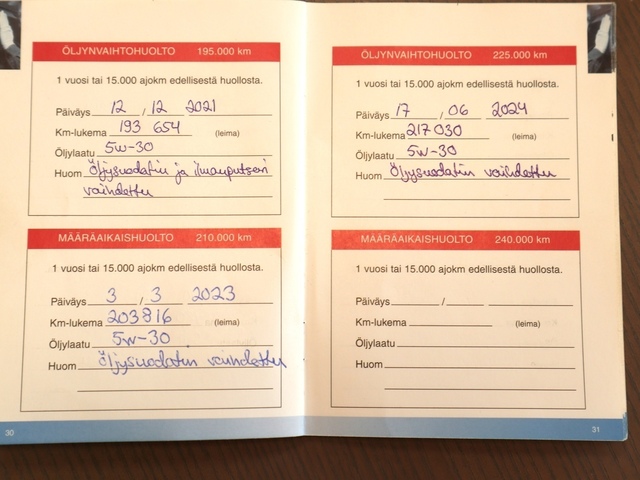 ÖLJYNVAIHTOHUOLTO 195.000 km
1 vuosi tai 15.000 ajokm edellisestä huollosta.
Päiväys 12 / 12 2021
Km-lukema 193 654 (leima)
Öljylaatu 5w-30
Huom Öljysuodatin ja ilmanputseri
vaihdettu
MÄÄRÄAIKAISHUOLTO 210.000 km
1 vuosi tai 15.000 ajokm edellisestä huollosta.
Päiväys 3 / 3 2023
Km-lukema 203816 (leima)
Öljylaatu 5w-30
Huom öljysuodatin vaihdettu
30
ÖLJYNVAIHTOHUOLTO 225.000 km
1 vuosi tai 15.000 ajokm edellisestä huollosta.
Päiväys 17 / 06 2024
Km-lukema 217030 (leima)
Öljylaatu 5w-30
Huom Öljysuodatin vaihdettu
MÄÄRÄAIKAISHUOLTO 240.000 km
1 vuosi tai 15.000 ajokm edellisestä huollosta.
Päiväys / 
Km-lukema (leima)
Öljylaatu
Huom
31